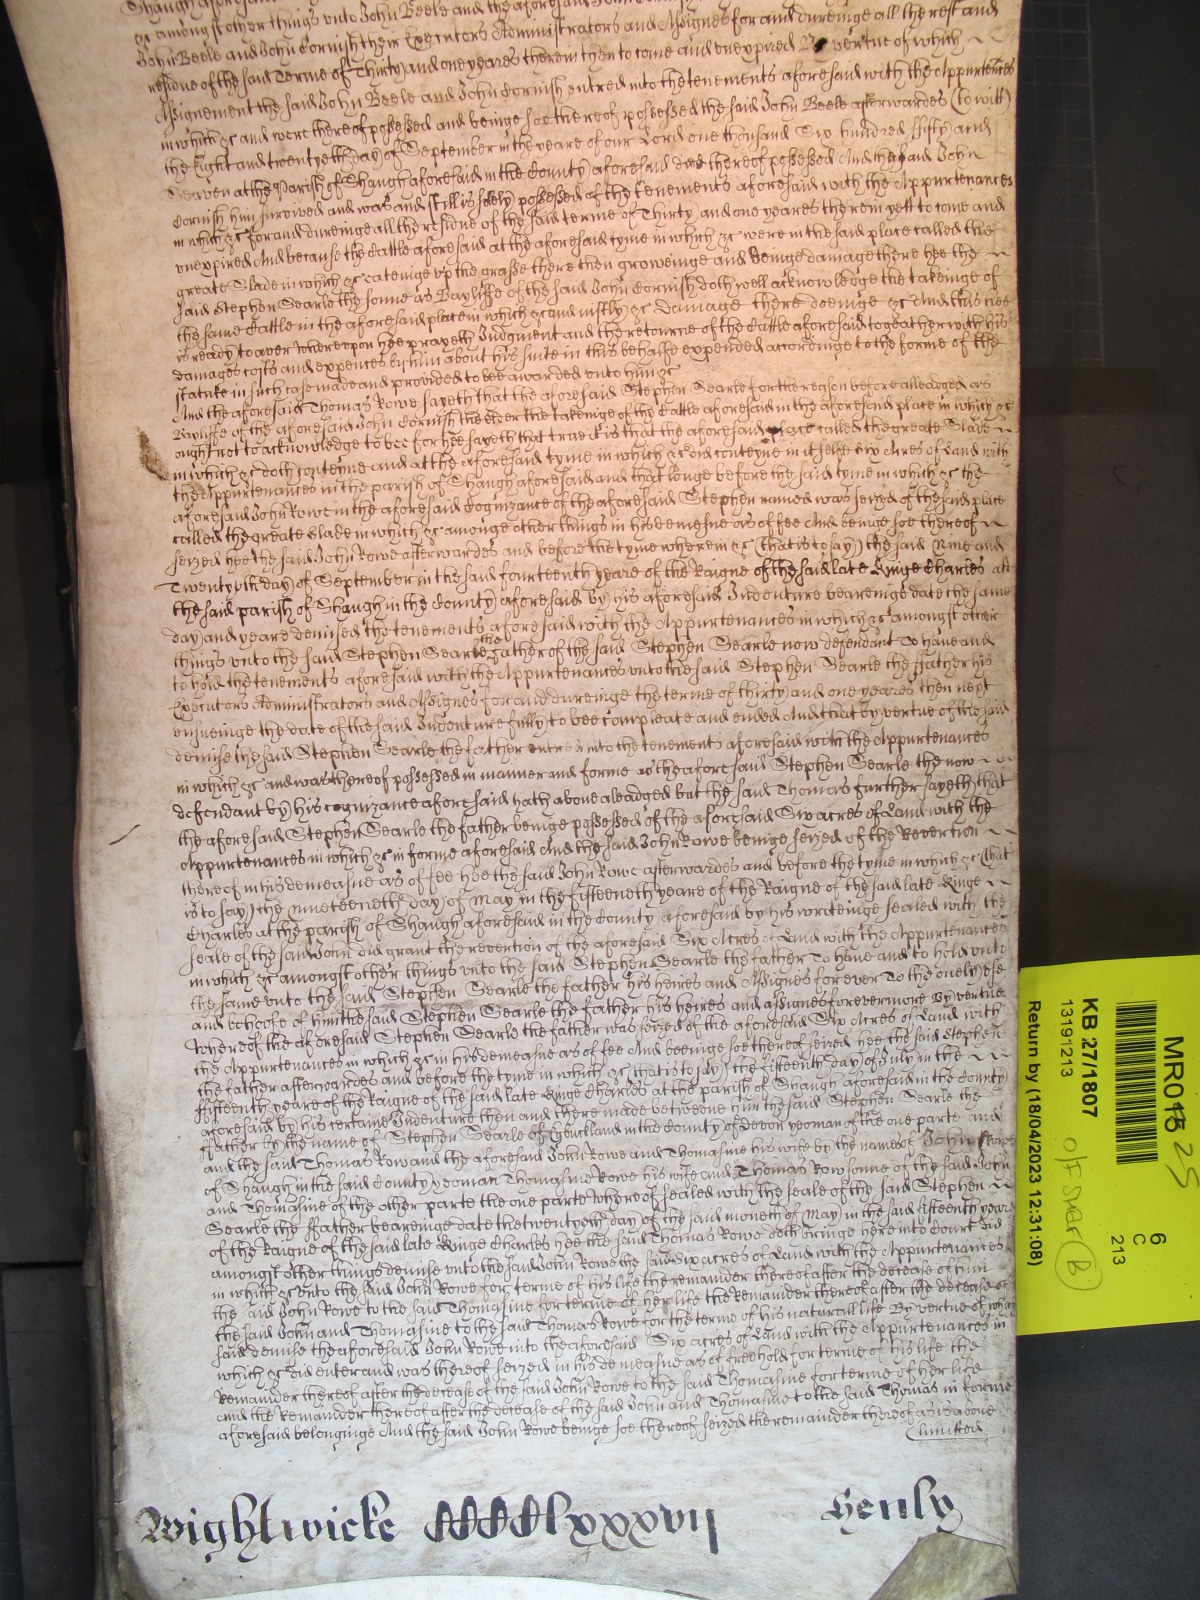 Shaugh aforesaid
&c amongst other things unto John Beele and the aforesaid John Cornish
John Beele and John Cornish their Executors Administrators and Assignes for and dureinge all the rest and
residue of the said Terme of Thirty and one yeares therein then to come and unexpired By vertue of which
Assignement the said John Beele and John Cornish entred into the tenements aforesaid with the Appurtences
in which &c and were thereof possessed and beinge soe thereof possessed the said John Beele afterwardes (to witt)
the Eight and twentyeth day of September in the yeare of our Lord one thousand Six hundred ffifty and
Seaven at the Parish of Shaugh aforesaid in the County aforesaid died thereof possessed And the said John
Cornish him survived and was and still is solely possessed of the tenements aforesaid with the Appurtenances
in which &c for and dureinge all the residue of the said terme of Thirty and one yeares therein yett to come and
unexpired And because the Cattle aforesaid at the aforesaid tyme in which &c were in the said place called the
great Slade in which &c eateinge up the grasse there then groweinge and doinge damage there hee the
said Stephen Searle the sonne as Bayliffe of the said John Cornish doth well acknowledge the takeinge of
the same Cattle in the aforesaid place in which &c and iustly &c damage there doeinge &c And this hee
is ready to averr Whereupon hee prayeth Judgment and the retourne of the Cattle aforesaid togeather with his
damages costs and expences by him about his suite in this behalfe expended accordinge to the forme of the
statute in such case made and provided to bee awarded unto him &c
And the aforesaid Thomas Rowe sayeth that the aforesaid Stephen Searle for the reason before alleadged as
Bayliffe of the aforesaid John Cornish the takeinge of the Cattle aforesaid in the aforesaid place in which &c
ought not to acknowledge to bee for hee sayeth that true it is that the aforesaid place called the greate Slade
in which &c doth conteyne and at the aforesaid tyme in which &c did conteyne in it selfe Six Acres of Land with
the Appurtenances in the parish of Shaugh aforesaid and that longe before the said tyme in which &c the
aforesaid John Rowe in the aforesaid Cognizance of the aforesaid Stephen named was seized of the said place
called the greate Slade in which &c amonge other things in his demesne as of fee And beinge soe thereof
seized hee the said John Rowe afterwardes and before the tyme wherein &c (that is to say) the said Nine and
Twentyeth day of September in the said fourteenth yeare of the Raigne of the said late Kinge Charles att
the said parish of Shaugh in the County aforesaid by his aforesaid Indenture beareinge date the same
day and yeare demised the tenements aforesaid with the Appurtenances in which &c amongst other
things unto the said Stephen Searle the father of the said Stephen Searle now defendant To have and
to hold the tenements aforesaid with the Appurtenances unto the said Stephen Searle the ffather his
Executors Administrators and Assignes for and dureinge the terme of thirty and one yeares then next
ensueinge the date of the said Indenture fully to bee compleate and ended And that by vertue of the said
demise the said Stephen Searle the father entred into the tenements aforesaid with the Appurtenances
in which &c and was thereof possessed in manner and forme as the aforesaid Stephen Searle the now
defendant by his cognizance aforesaid hath above aleadged but the said Thomas further sayeth that
the aforesaid Stephen Searle the father beinge possessed of the aforesaid Six acres of Land with the
Appurtenances in which &c in forme aforesaid And the said John Rowe beinge seized of the Revertion
thereof in his demeasne as of fee hee the said John Rowe afterwardes and before the tyme in which &c (that
is to say) the nineteenth day of May in the fifteeneth yeare of the Raigne of the said late Kinge
Charles at the parish of Shaugh aforesaid in the County aforesaid by his writeinge sealed with the
seale of the said John did grant the revertion of the aforesaid Six Acres of Land with the Appurtenances
in which &c amongst other things unto the said Stephen Searle the father To have and to hold unto
the same unto the said Stephen Searle the father his heires and Assignes for ever To the onely use
and behoofe of him the said Stephen Searle the father his heires and assignes forevermore By vertue
whereof the aforesaid Stephen Searle the father was seized of the aforesaid Six Acres of Land with
the Appurtenances in which &c in his demeasne as of fee And beeinge soe thereof seized hee the said Stephen
the father afterwardes and before the tyme in which &c (that is to say) the fifteenth day of July in the
ffifteenth yeare of the Raigne of the said late Kinge Charles at the parish of Shaugh aforesaid in the County
aforesaid by his certaine Indenture then and there made betweene him the said Stephen Searle the
ffather by the name of Stephen Searle of Buckland in the County of Devon yeoman of the one parte and
and the said Thomas Row and the aforesaid John Rowe and Thomasine his wife by the names of John Rowe
of Shaugh in the said County yeoman Thomasine Rowe his wife and Thomas Row sonne of the said John
and Thomasine of the other parte the one parte whereof sealed with the seale of the said Stephen
Searle the ffather beareinge date the twentyeth day of the said moneth of May in the said fifteenth yeare
of the Raigne of the said late Kinge Charles hee the said Thomas Rowe doth bringe here into Court did
amongst other things demise unto the said John Rowe the said Six acres of Land with the Appurtenances
in which &c unto the said John Rowe for terme of his life the remainder thereof after the decease of him
the said John Rowe to the said Thomasine for terme of her life the Remainder thereof after the decease of
the said John and Thomasine to the said Thomas Rowe for the terme of his naturall life By vertue of which
said demise the aforesaid John Rowe into the aforesaid Six acres of Land with the Appurtenances in
which &c did enter and was thereof seized in his demeasne as of freehold for terme of his life the
Remainder thereof after the decease of the said John Rowe to the said Thomasine for terme of her life
and the Remainder thereof after the decease of the said John and Thomasine to the said Thomas in forme
aforesaid belonginge And the said John Rowe beinge soe thereof seized the remainder thereof as is above
limitted
Wightwicke MMMMlxxxvij Henly
MR013
25
KB 27/1807
13191213
Return by (18/04/2023 12:31:08)
6
C
213
B